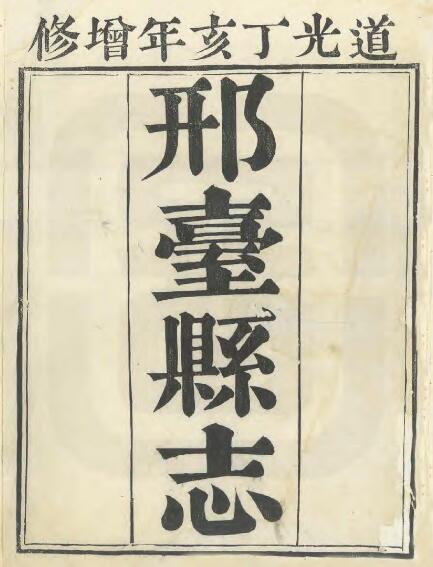 道光丁亥年增修
邢臺縣志